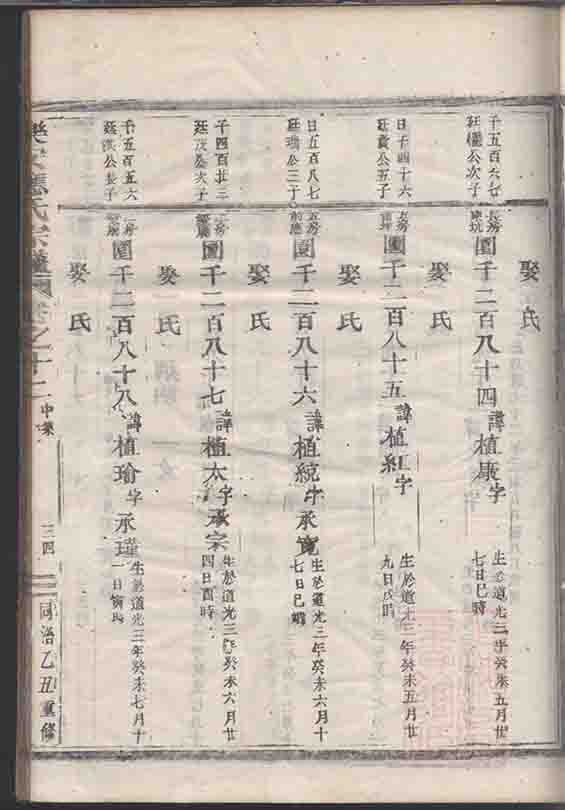 娶氏
千五百六七
廷權公次子
長房
園千二百八十四諱植康字
生於道光三年癸未五月廿
七日巳時
娶氏
日千四十六
廷貴公五子
園千二百八十五諱植紅字
生於道光三年癸未五月廿
九日戌時
娶氏
日五百八七
園千二百八十六諱植統字承寬
生於道光三年癸未六月十
七日巳時
娶氏
千四百廿三
廷茂公次子
園千二百八十七諱植太字承宗
生於道光三年癸未六月廿
四日酉時
娶氏
千五百五六
園千二百八十八諱植瑜字承瑾
生於道光三年癸未七月十
一日寅時
娶氏
氏宗譜
卷之十二
中葉
三四
同治乙丑重修